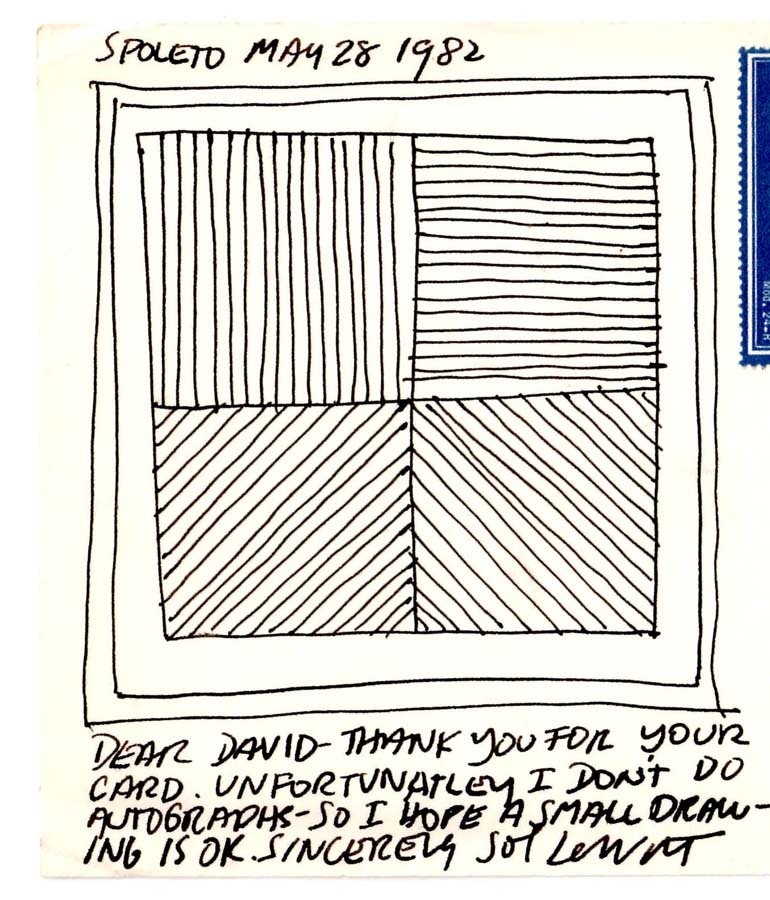 SPOLETO MAY 28 1982
DEAR DAVID- THANK YOU FOR YOUR
CARD. UNFORTUNATLEY I DON'T DO
AUTOGRAPHS-SO I HOPE A SMALL DRAW-
ING IS OK. SINCERELY SOL LEWITT